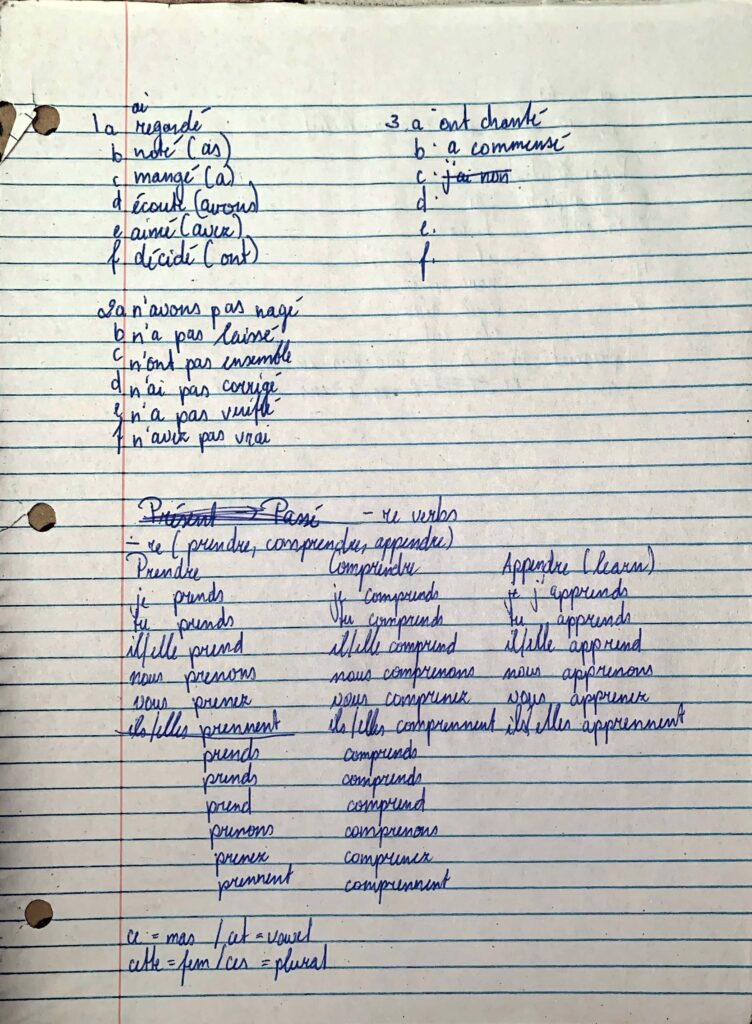 ai
1a regardé
b noté (as)
c mangé (a)
d écouté (avons)
e aimé (avez)
f décidé (ont)
3. a ont chanté
b. a commensé
c. j'ai non
d.
e.
f.
2a n'avons pas nagé
b n'a pas laissé
c n'ont pas ensemble
d n'ai pas corrigé
e n'a pas vérifié
f n'avez pas vrai
Présent → Passé - re verbs
- re (prendre, comprendre, appendre)
Prendre Comprendre Appendre (learn)
je prends je comprends je j'apprends
tu prends tu comprends tu apprends
il/elle prend il/elle comprend il/elle apprend
nous prenons nous comprenons nous apprenons
vous prenez vous comprenez vous apprenez
ils/elles prennent ils/elles comprennent ils/elles apprennent
prends comprends
prends comprends
prend comprend
prenons comprenons
prenez comprenez
prennent comprennent
ce = mas / cet = vowel
cette = fem / ces = plural